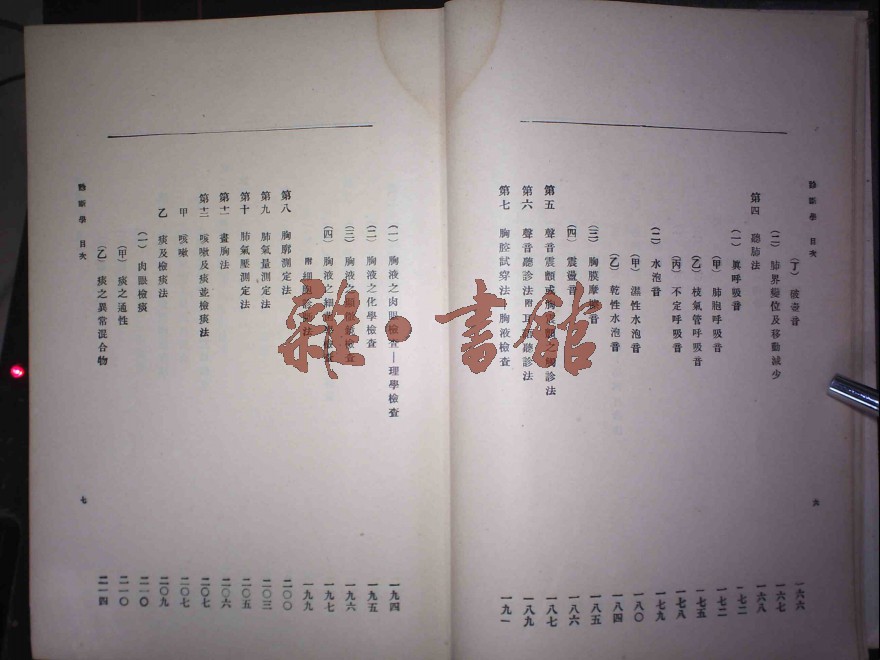 診斷學 目次
(丁) 破壺音 一六六
(二) 肺界變位及移動減少 一六七
第四 聽肺法 一六八
(一) 異呼吸音 一七二
(甲) 肺胞呼吸音 一七二
(乙) 枝氣管呼吸音 一七五
(丙) 不定呼吸音 一七八
(二) 水泡音 一七九
(甲) 濕性水泡音 一八〇
(乙) 乾性水泡音 一八四
(三) 胸膜摩擦音 一八五
(四) 震盪音 一八六
第五 聲音震顫或胸之觸診法 一八七
第六 聲音聽診法附耳聽診法 一八九
第七 胸腔試穿法 胸液檢查 一九一
六
診斷學 目次
(一) 胸液之肉眼檢查—理學檢查 一九四
(二) 胸液之化學檢查 一九五
(三) 胸液之檢查 一九六
(四) 胸液之細檢查 一九七
附 細胞診斷法 一九九
第八 胸廓測定法 二〇〇
第九 肺氣量測定法 二〇三
第十 肺氣壓測定法 二〇五
第十一 畫胸法 二〇六
第十二 咳嗽及痰並檢痰法 二〇七
甲 咳嗽 二〇七
乙 痰及檢痰法 二〇九
(一) 肉眼檢痰 二一〇
(甲) 痰之通性 二一〇
(乙) 痰之異常混合物 二一四
七
雜·書館